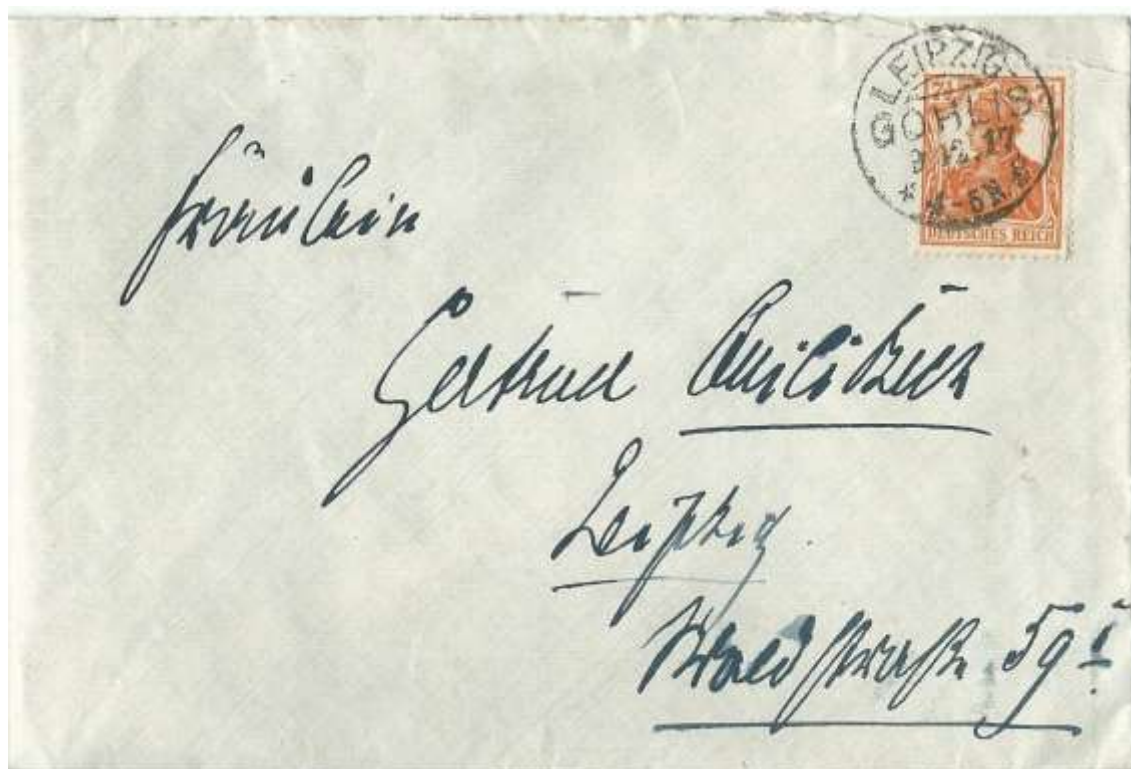 LEIPZIG-
GOHLIS
12.17
DEUTSCHES REICH
Fräulein
Gertrud
Leipzig.
Waldstraße 59 I